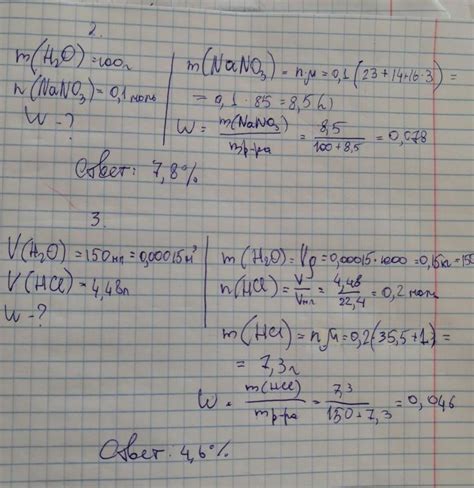 2.
m(H₂O)=100г
n(NaNO₃)=0,1 моль
W-?
m(NaNO₃)=n·μ=0,1(23+14+16·3)=
=0,1·85=8,5(г)
W=m(NaNO₃)/mр-ра=8,5/100+8,5=0,078
Ответ: 7,8%
3.
V(H₂O)=150мл=0,00015м³
V(HCl)=4,48л
W-?
m(H₂O)=Vρ=0,00015·1000=0,15кг=150
n(HCl)=V/Vм=4,48/22,4=0,2 моль
m(HCl)=n·μ=0,2(35,5+1)=
=7,3г
W=m(HCl)/mр-ра=7,3/150+7,3=0,046
Ответ: 4,6%